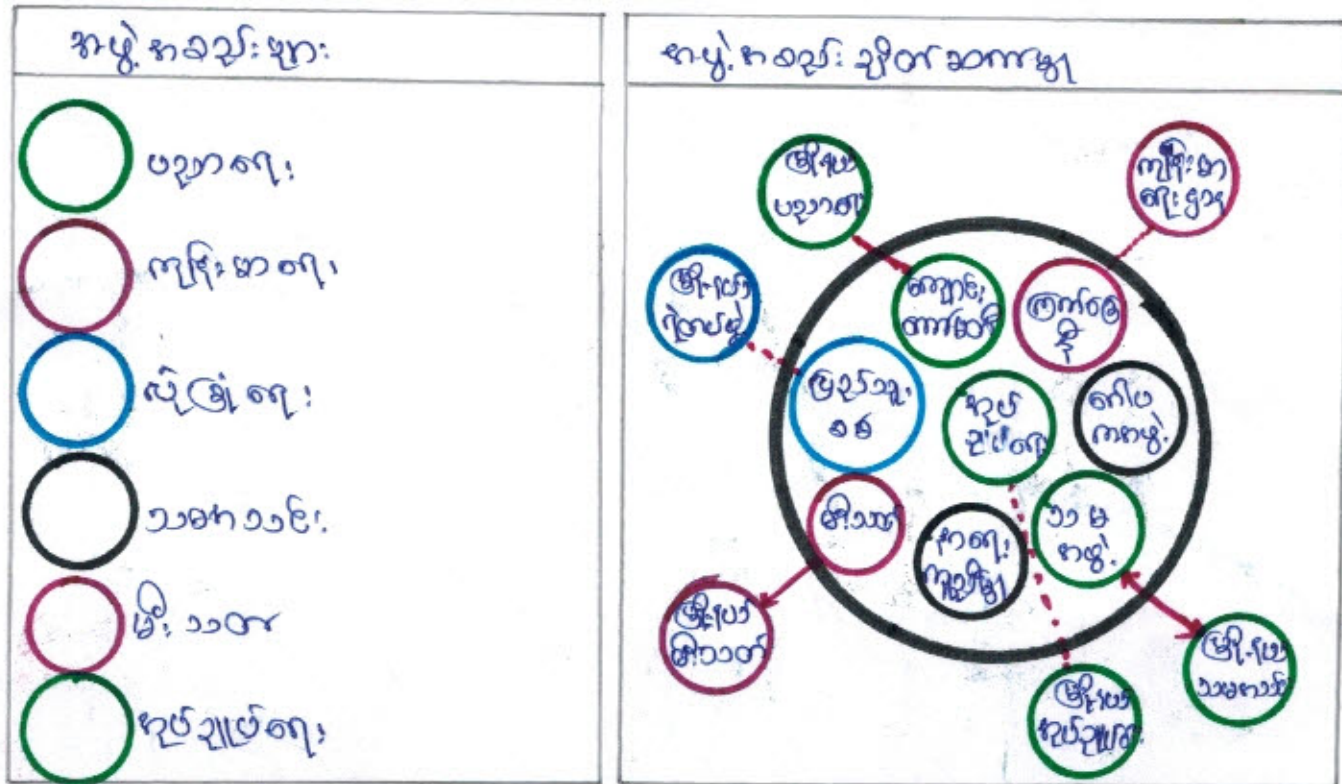 အဖွဲ့အစည်းများ
ပညာရေး
ကျန်းမာရေး
လုံခြုံရေး
သမဝါယမအသင်း
မီးသတ်
အုပ်ချုပ်ရေး
အဖွဲ့အစည်းချိတ်ဆက်မှု
မြို့နယ်
ပညာရေး
ကျန်းမာ
ရေးဌာန
မြို့နယ်
ရဲတပ်ဖွဲ့
ကျောင်း
ကော်မတီ
ကြက်ခြေ
နီ
ပြည်သူ့
စစ်
အုပ်
ချုပ်ရေး
ဂေါပ
ကအဖွဲ့
မီးသတ်
နာရေး
ကူညီမှု
သမ
အဖွဲ့
မြို့နယ်
မီးသတ်
မြို့နယ်
အုပ်ချုပ်ရေး
မြို့နယ်